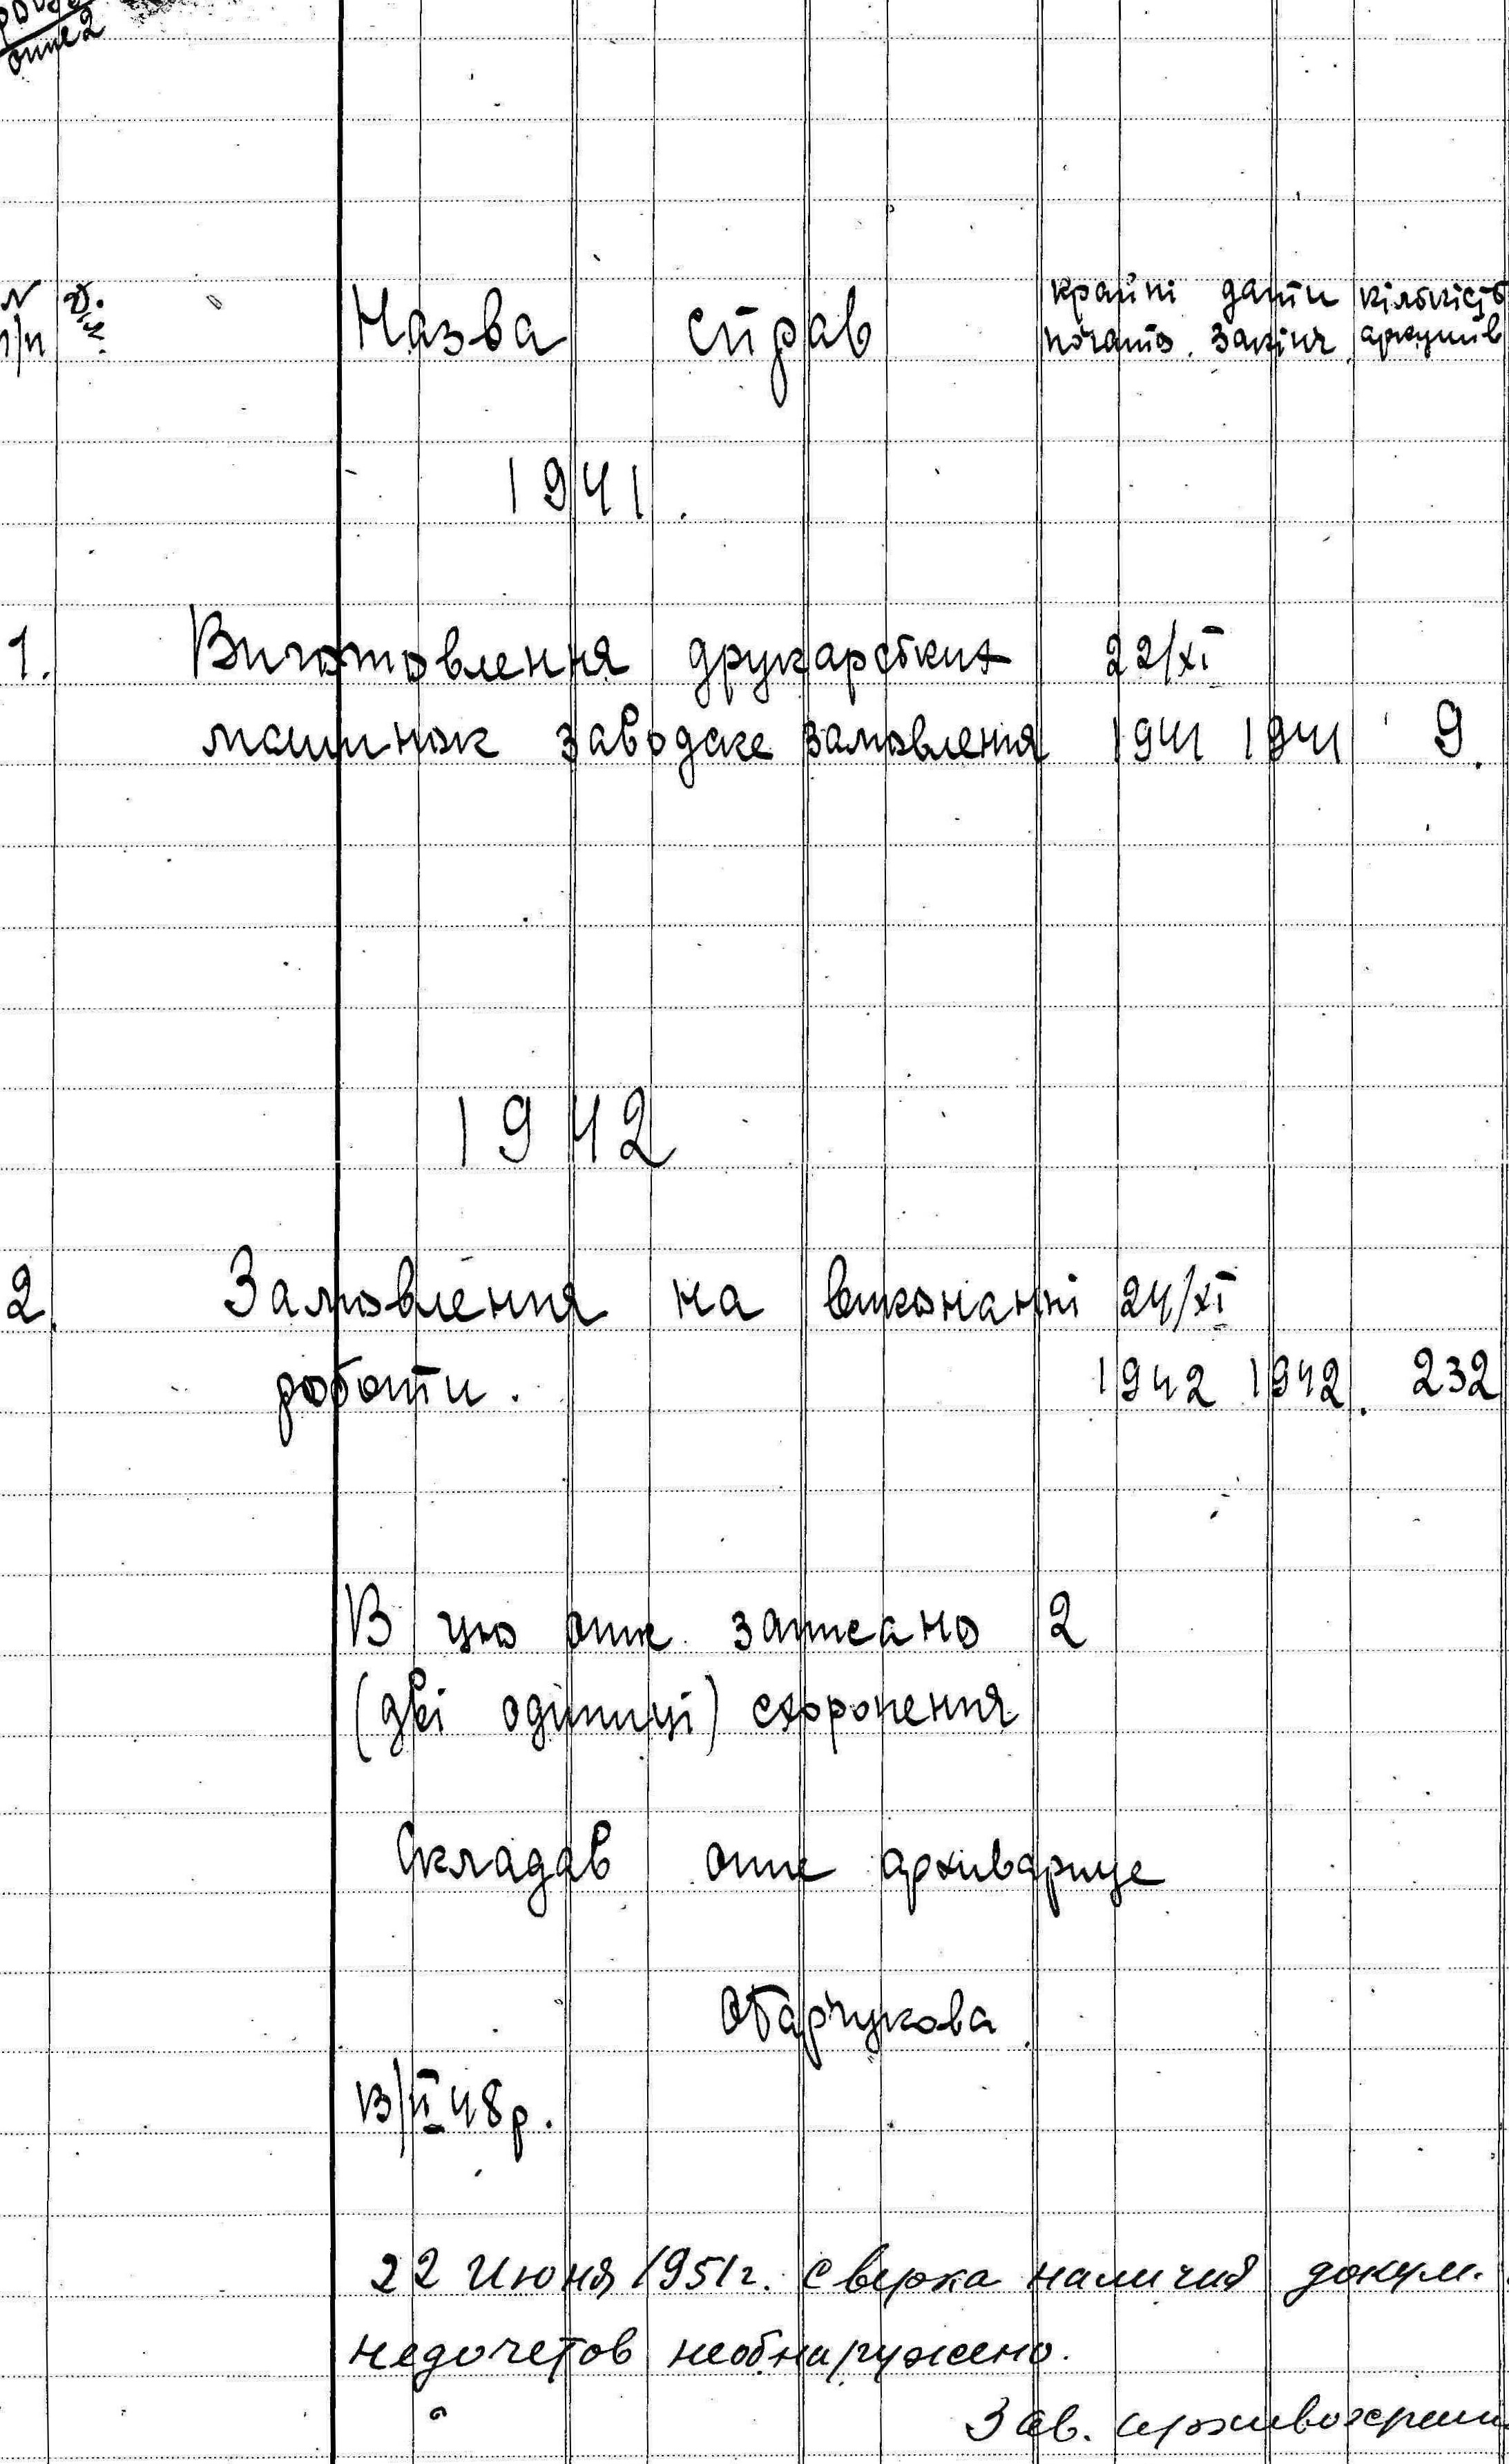 опис 2
N Д.
п/п м.
Назва справ
крайні дати кількість
початк. закінч. аркушів
1941.
1. Виготовлення друкарських 22/XI
машинок заводске замовлення 1941 1941 9.
1942
2. Замовлення на виконанні 24/XI
роботи. 1942 1942. 232
В цю опис записано 2
(дві одиниці) схоронення
Складав опис архивариус
13/II 48р.
22 июня 1951г. сверка наличия докум.
недочетов необнаружено.
Зав. архивохран